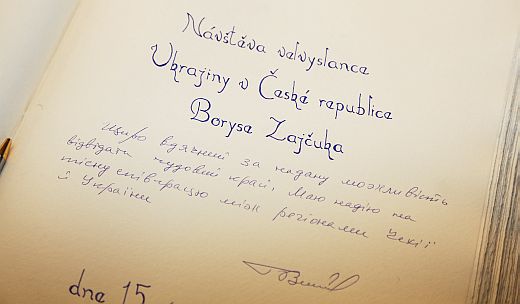 Návštěva velvyslance
Ukrajiny v České republice
Borysa Zajčuka
Щиро вдячний за надану можливість
відвідати чудовий край. Маю надію на
тісну співпрацю між регіонами Чехії
й України
dne 15